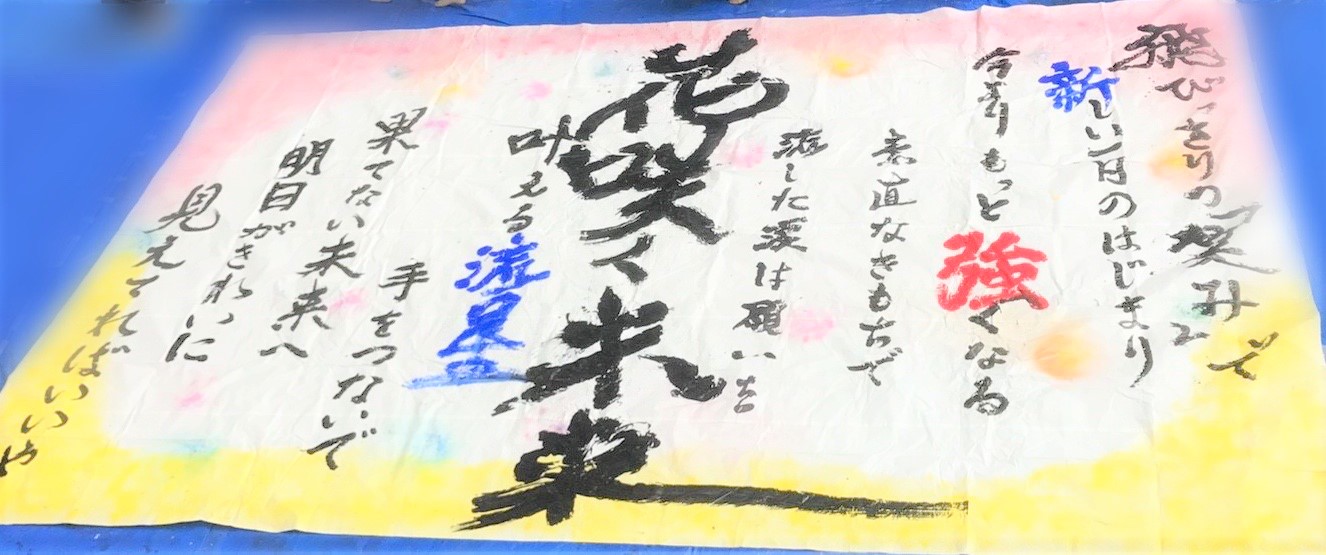 飛びっきりの笑みで
新しい日のはじまり
今よりもっと強くなる
素直なきもちで
流した涙は願いを
花咲く未来
叶える流星
手をつないで
果てない未来へ
明日がきれいに
見えてればいいや